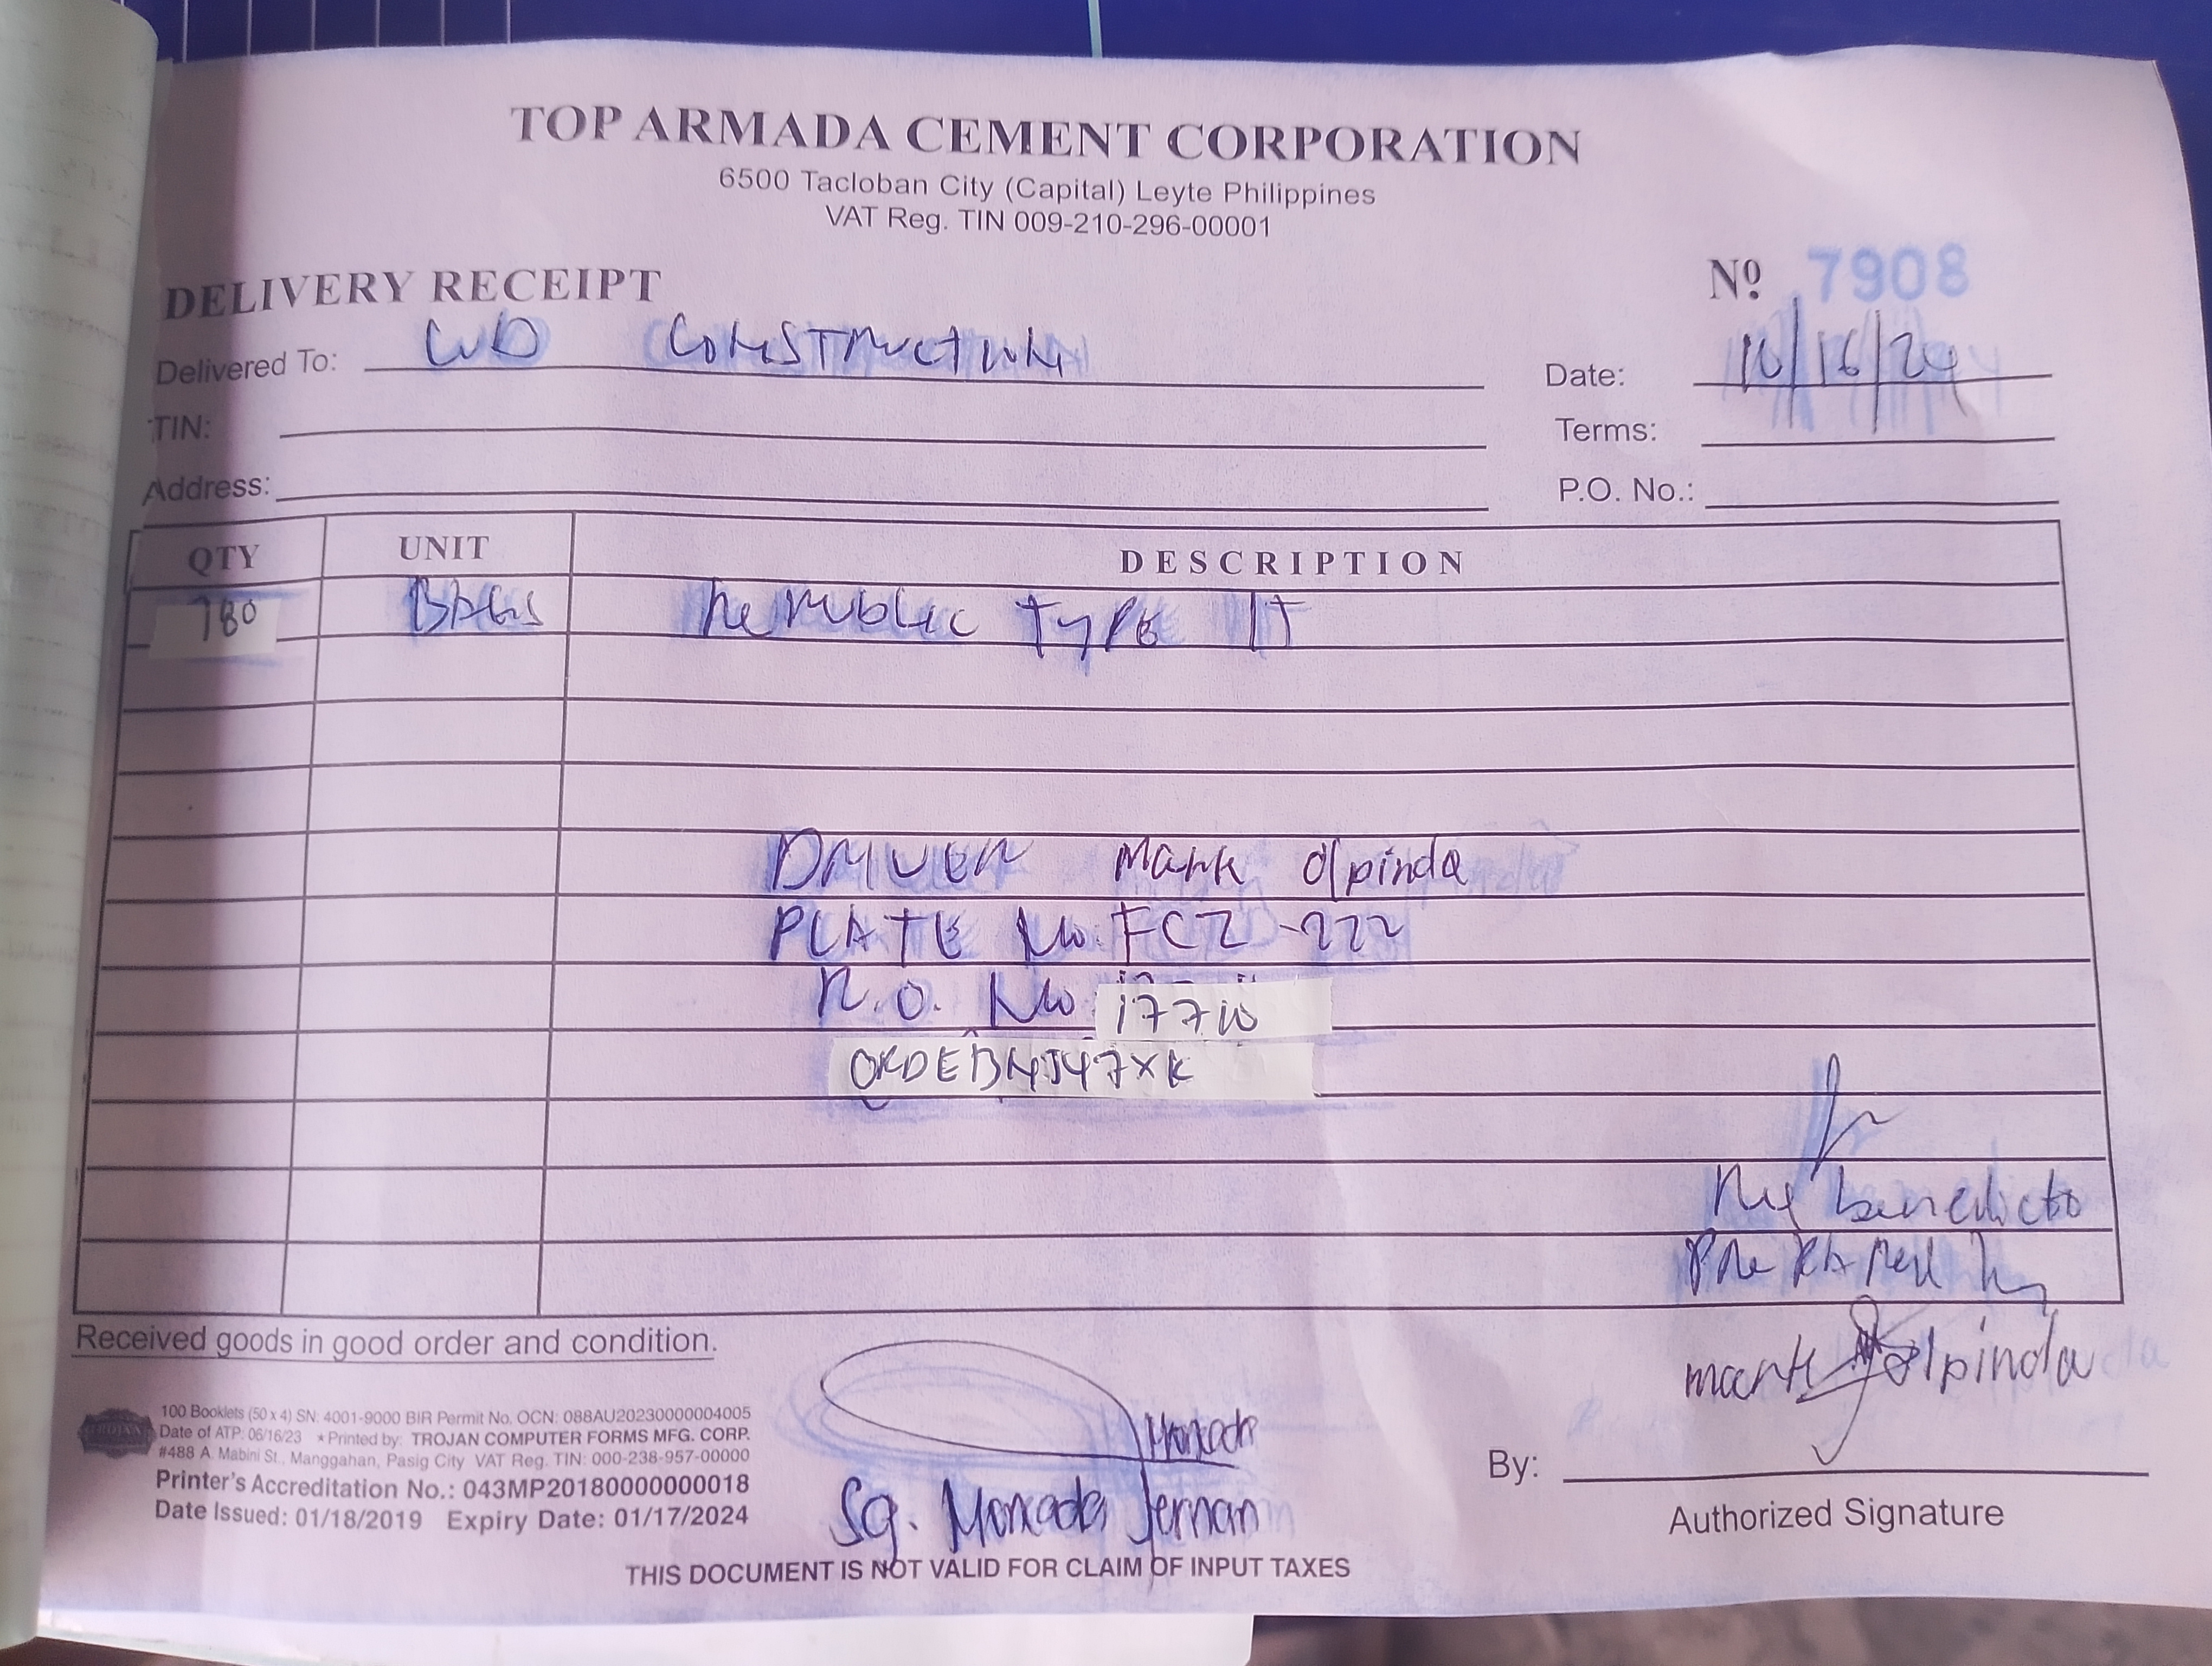 TOP ARMADA CEMENT CORPORATION
6500 Tacloban City (Capital) Leyte Philippines
VAT Reg. TIN 009-210-296-00001
DELIVERY RECEIPT
Nº 7908
Delivered To: CONSTRUCTION
Date: 10/16/24
TIN:
Terms:
Address:
P.O. No.:
QTY UNIT DESCRIPTION
780 BAGS REPUBLIC TYPE 1T
DRIVER Mark Olpinda
PLATE No. FCZ-222
R.O. No. 17710
ORDEBNJ47XK
benedicto
PREPARED by
mark olpinda
Received goods in good order and condition.
100 Booklets (50 x 4) SN: 4001-9000 BIR Permit No. OCN: 088AU20230000004005
Date of ATP: 06/16/23 * Printed by: TROJAN COMPUTER FORMS MFG. CORP.
#488 A. Mabini St., Manggahan, Pasig City VAT Reg. TIN: 000-238-957-00000
Printer's Accreditation No.: 043MP20180000000018
Date Issued: 01/18/2019 Expiry Date: 01/17/2024
Moncada
Sg. Moncada Jernan
By:
Authorized Signature
THIS DOCUMENT IS NOT VALID FOR CLAIM OF INPUT TAXES